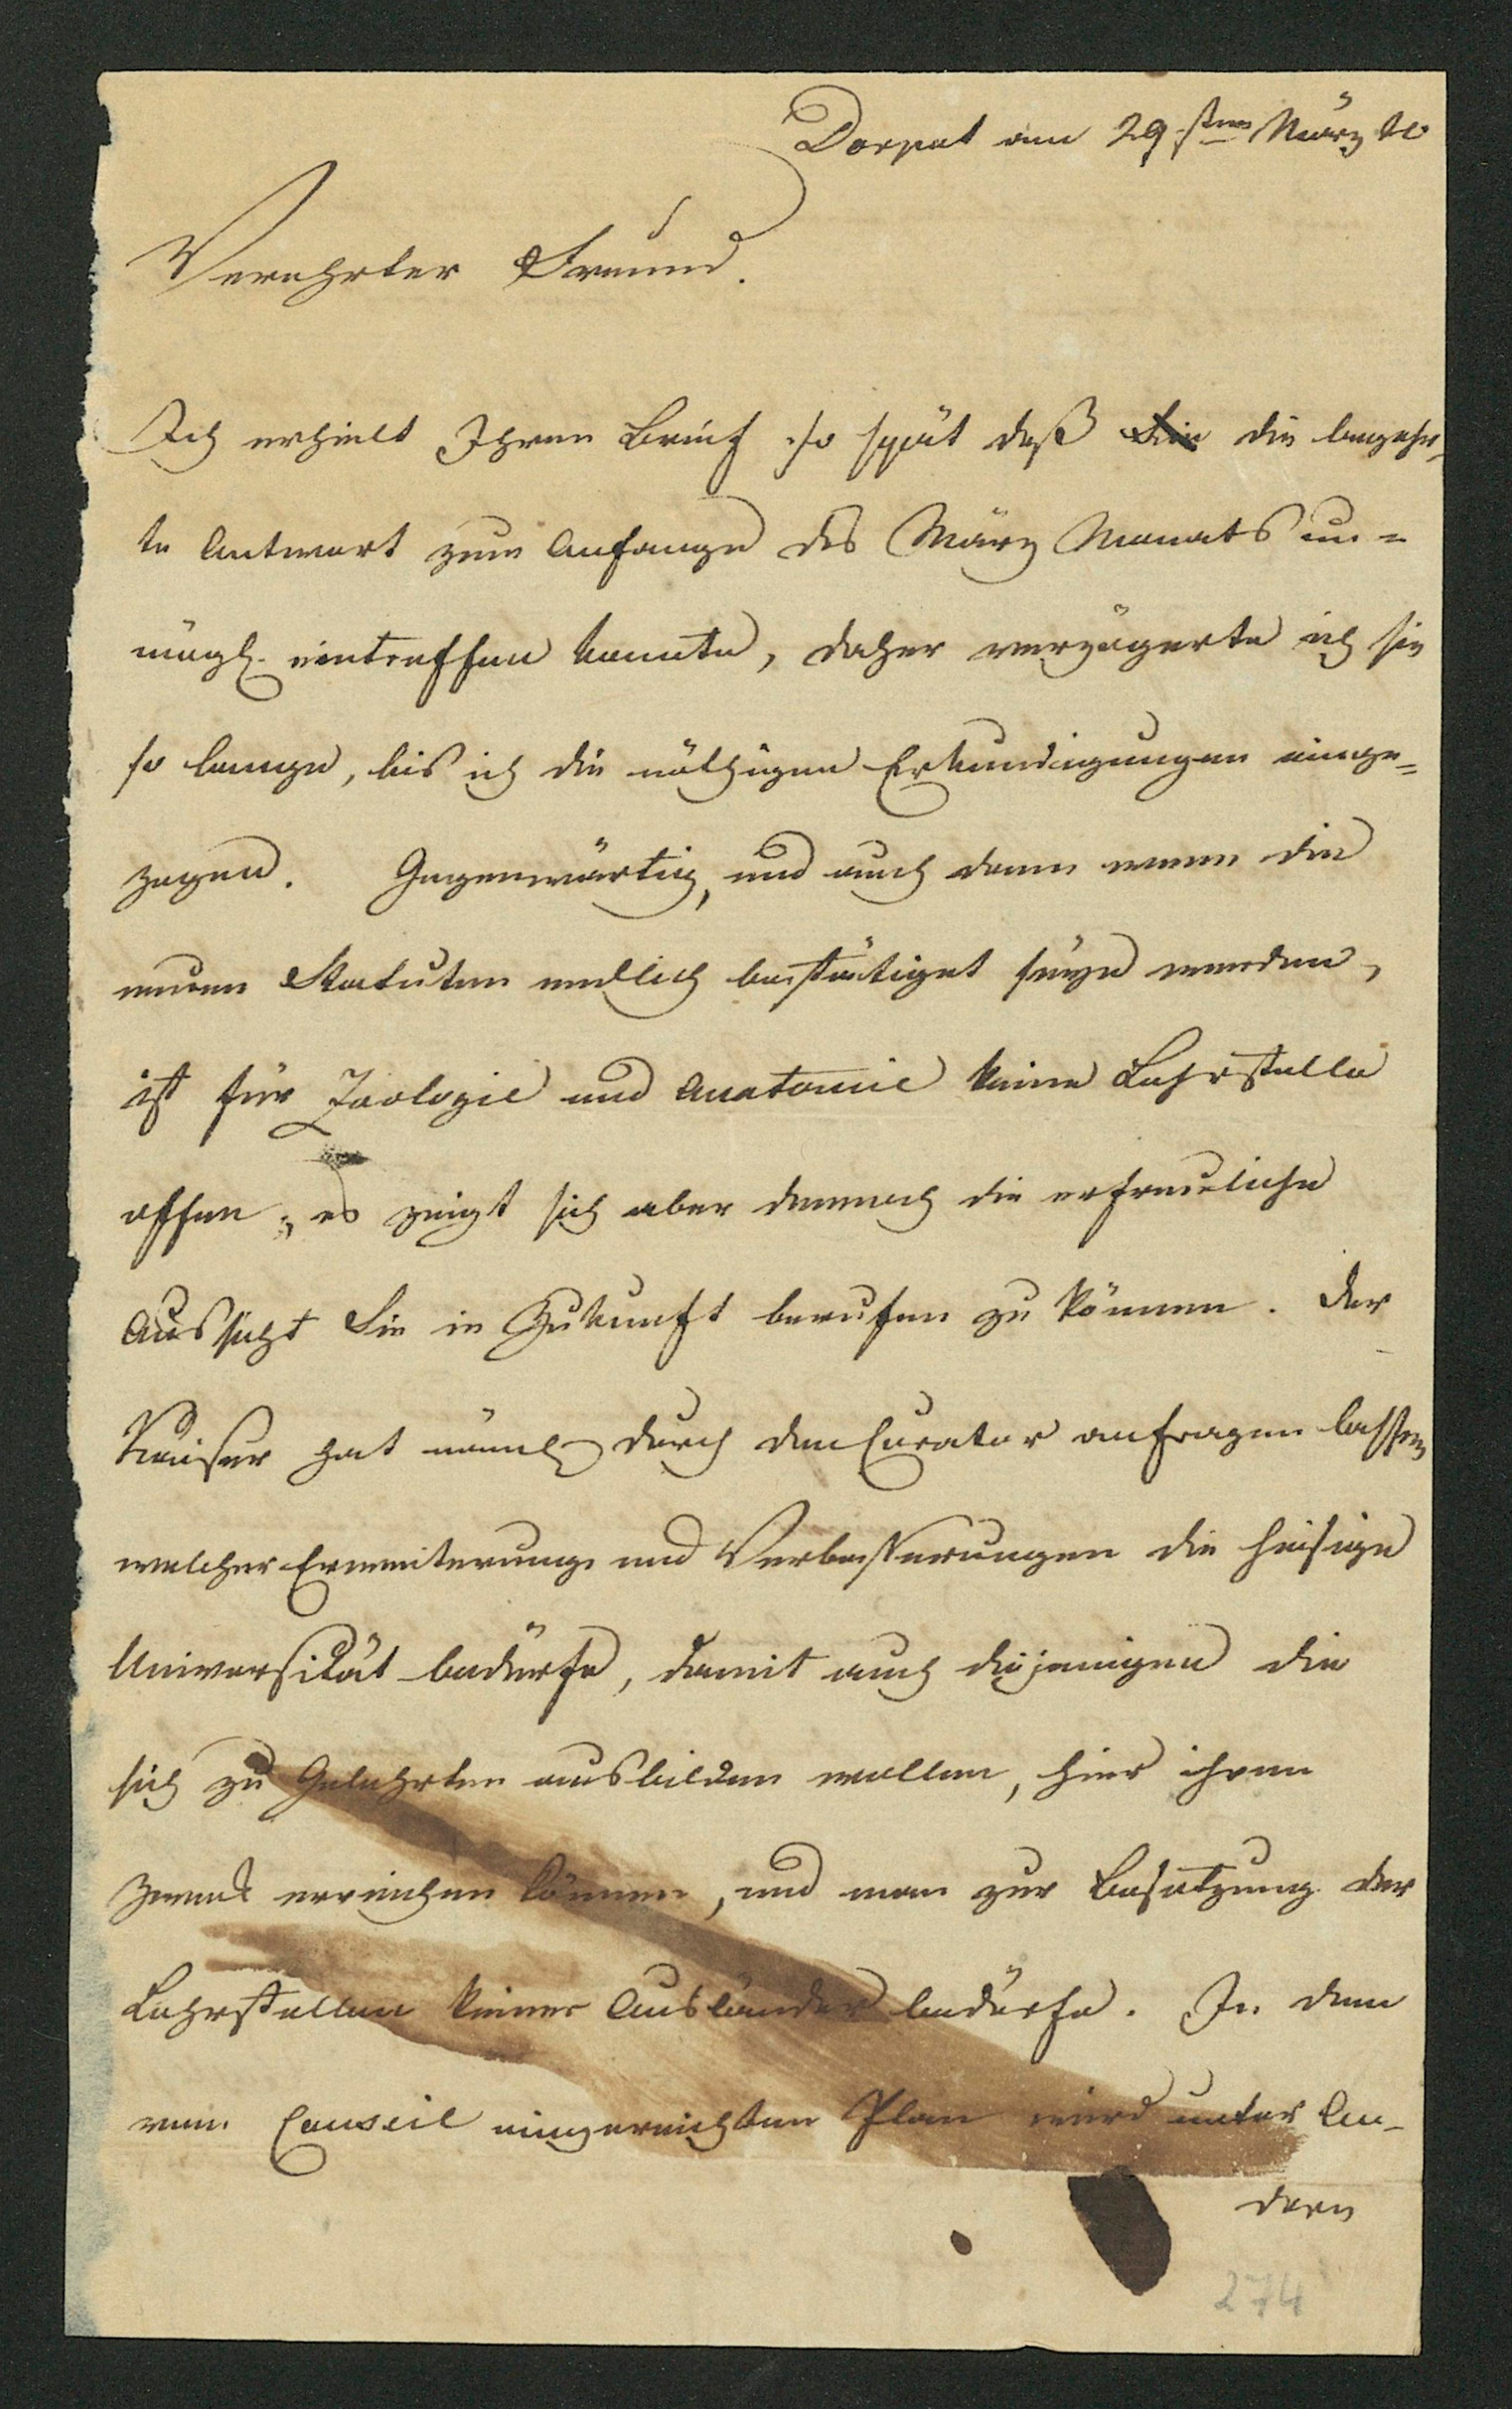 Dorpat am 29sten März 20
Verehrter Freund.
Ich erhielt Ihren Brief so spät daß Sie die begehr-
te Antwort zum Anfange des März Monats un=
mögl. eintreffen konnte, daher verzögerte ich sie
so lange, bis ich die nöthigen Erkundigungen einge=
zogen. Gegenwärtig, und auch dann wenn die
neuen Statuten endlich bestätiget seyn werden,
ist für Zoologie und Anatomie keine Lehrstelle
offen; es zeigt sich aber dennoch die erfreuliche
Aussicht Sie in Zukunft berufen zu können. Der
Kaiser hat nämlich durch den Curator anfragen lassen
welcher Erweiterung und Verbesserungen die hiesige
Universität bedürfe, damit auch diejenigen die
sich zu Gelehrten ausbilden wollen, hier ihren
Zweck erreichen können, und man zur Besetzung der
Lehrstellen keiner Ausländer bedürfe. In dem
vom Conseil eingereichten Plan wird unter An-
dern
274